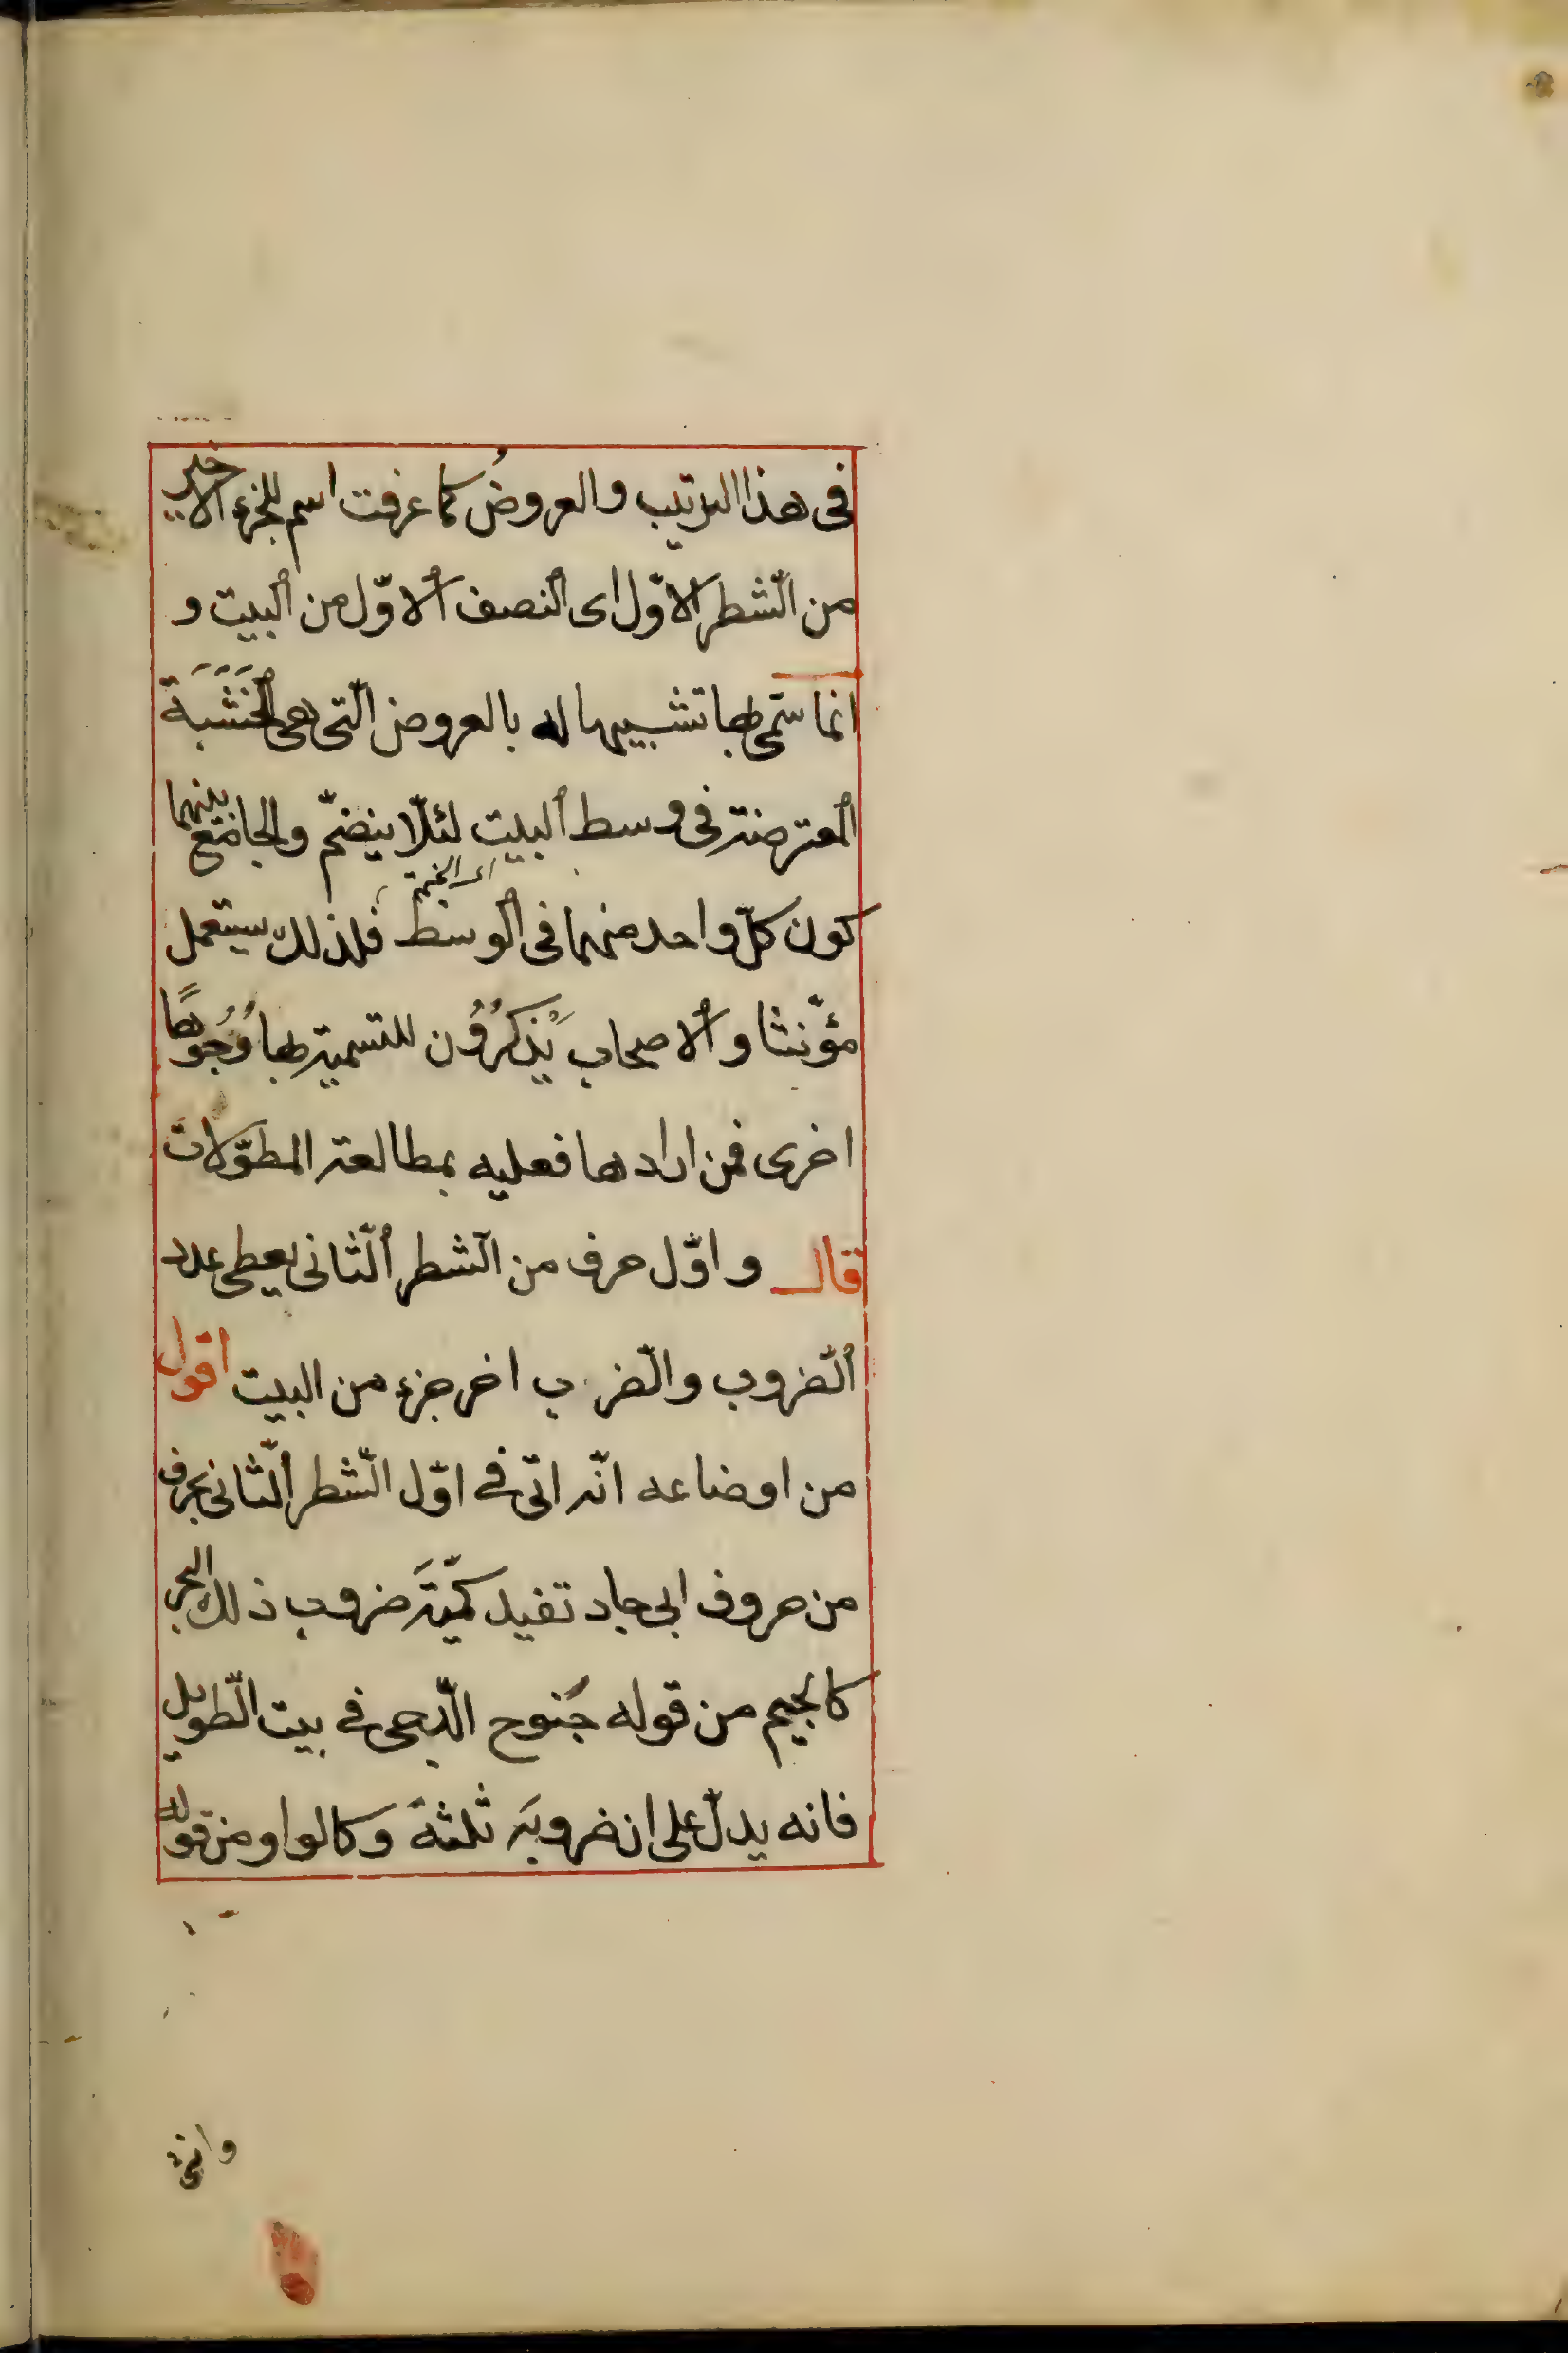 فى هذا الترتيب والعروضُ كما عرفت اسم للجزء الاخير
من الشّطر الاوّل اى النصف الاوّل من البيت و
انما سمّى بها تشبيها له بالعروض الّتى هى الخَشَبَةَ
المعترضة فى وسط البيت لئلّا ينضمّ والجامع بينهما
اى الخيمة
كون كلّ واحد منهما فى الوسط فلذلك يستعمل
مؤنّثا والاصحاب يَذْكُرُون للتسمية بها وُجُوهًا
اخرى فمن ارادها فعليه بمطالعة المطوّلات
قال واوّل حرف من الشّطر الثّانى يعطى عدد
الضّروب والضّرب اخر جزء من البيت اقول
من اوضاعه انّه اتى فى اوّل الشّطر الثّانى بحرف
من حروف ابى جاد تفيد كمّيّةَ ضروب ذلك البحر
كالجيم من قوله جُنوح الدّجى فى بيت الطّويل
فانه يدلّ على ان ضروبَه ثلثة وكالواو من قوله